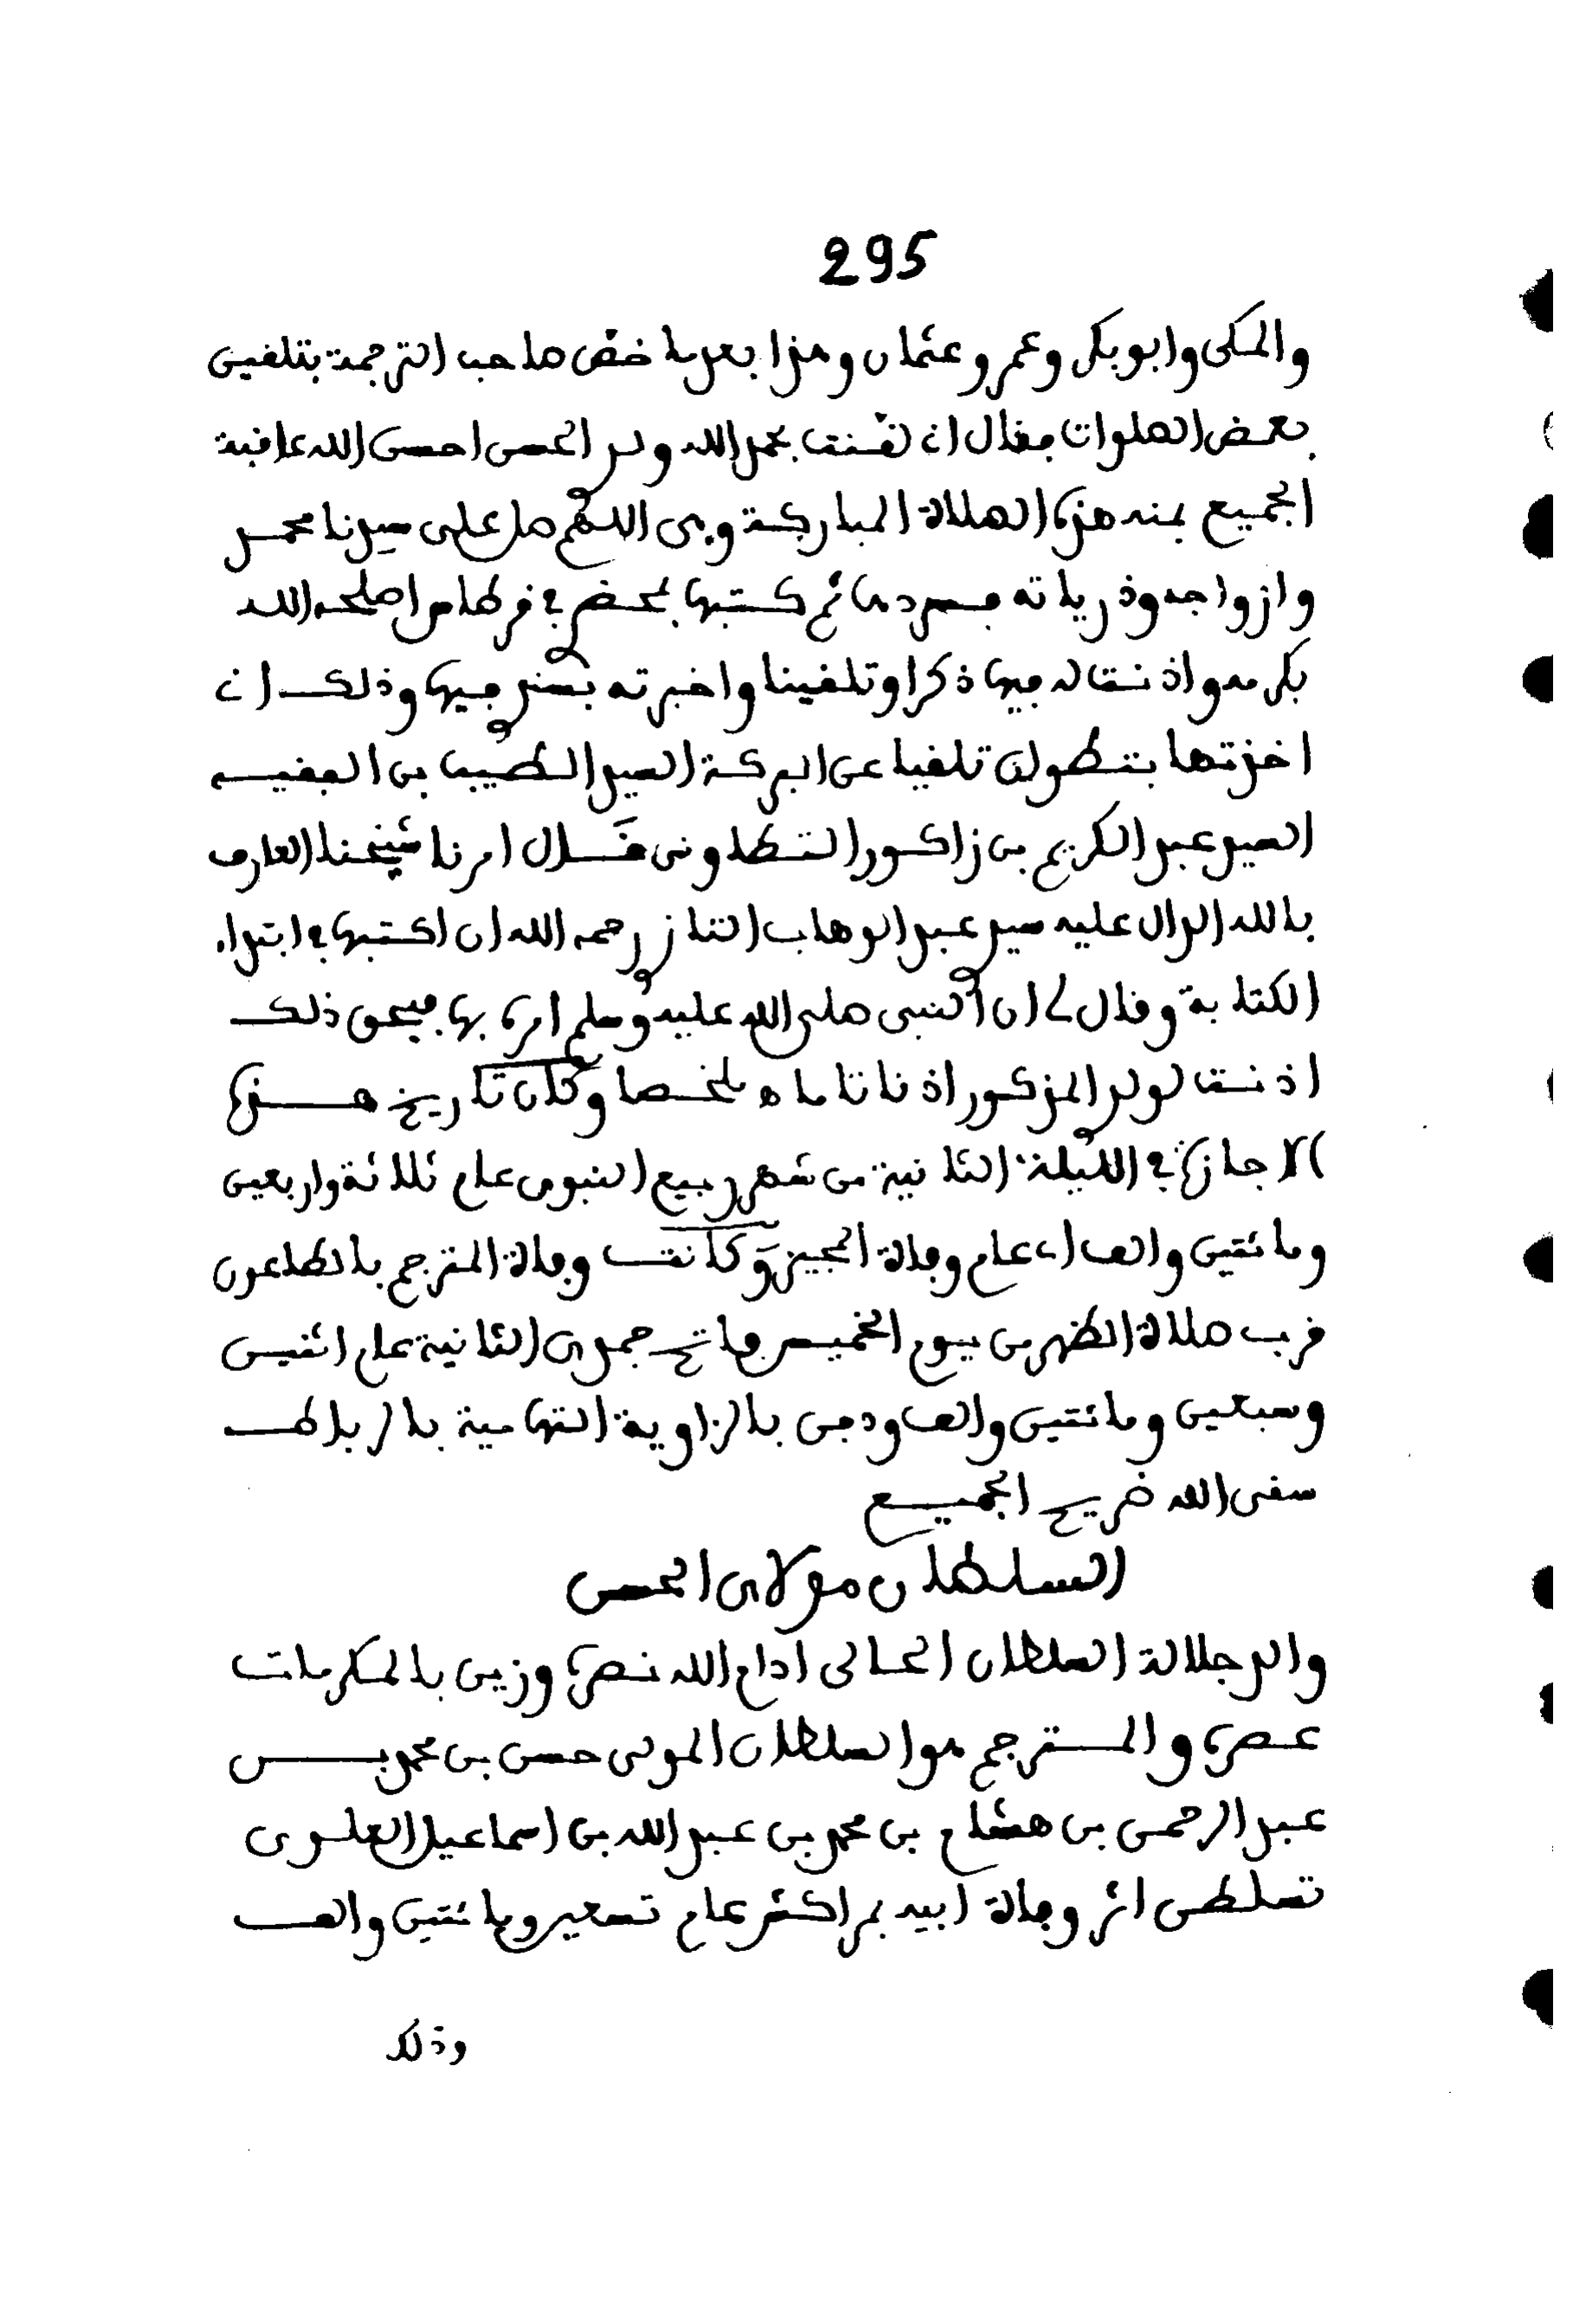 295
والمكى وابو بكر وعمر وعثمان وهذا بعد ما خص صاحب الترجمة بتلفين
بعض الصلوات فقال انى لقنت بحمد الله ولد الحسن احسن الله عاقبة
الجميع بمنه هذه الصلاة المباركة وهى اللهم صل على سيدنا محمد
وازواجه وذرياته فسردها ثم كتبها بمحضرى فى قرطاس اصلحه الله
بكرمه واذنت له فيها ذكرا وتلقينا واخبرته بسندى فيها وذلك انى
اخذتها بتطوان تلقيا عن البركة السيد الطيب بن الفقيه
السيد عبد الكريم بن زاكور التطاونى قال امرنا شيخنا العارف
بالله الدال عليه سيدى عبد الوهاب التازى رحمه الله ان اكتبها فى ابتداء
الكتابة وقال لى ان النبى صلى الله عليه وسلم امره بها فبحق ذلك
اذنت لولد المذكور اذنا تاما ه ملخصا وكان تاريخ هذه
الاجازة فى الليلة الثانية من شهر ربيع النبوى عام ثلاثة واربعين
ومائتين والف اى عام وفاة المجيز وكانت وفاة المترجم بالطاعون
قرب صلاة الظهر من يوم الخميس فاتح جمدى الثانية عام اثنين
وسبعين ومائتين والف ودفن بالزاوية التهامية بالرباط
سقى الله ضريح الجميع
السلطان مولاى الحسن
والد جلالة السلطان الحالى ادام الله نصره وزين بالمكرمات
عصره والمترجم هو السلطان المولى حسن بن محمد بن
عبد الرحمن بن هشام بن محمد بن عبد الله بن اسماعيل العلوى
تسلطن اثر وفاة ابيه بمراكش عام تسعين ومائتين والف
وذلك